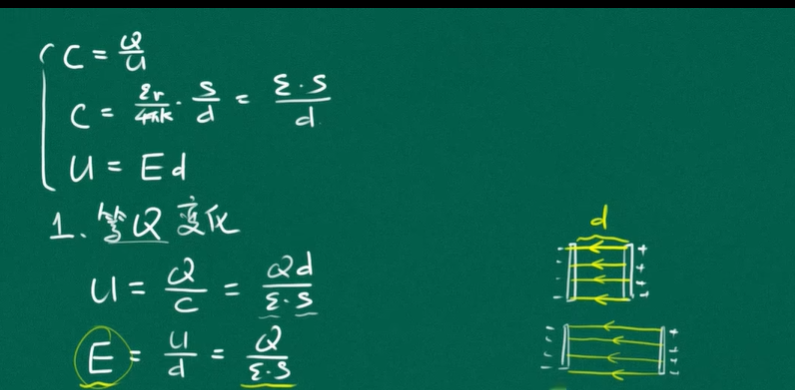 C = Q/U
C = εr/4πk · S/d = ε·S/d
U = Ed
1、等Q变化
U = Q/C = Qd/ε·S
E = U/d = Q/ε·S
d
- - - - + + + +
- - - - + + + +